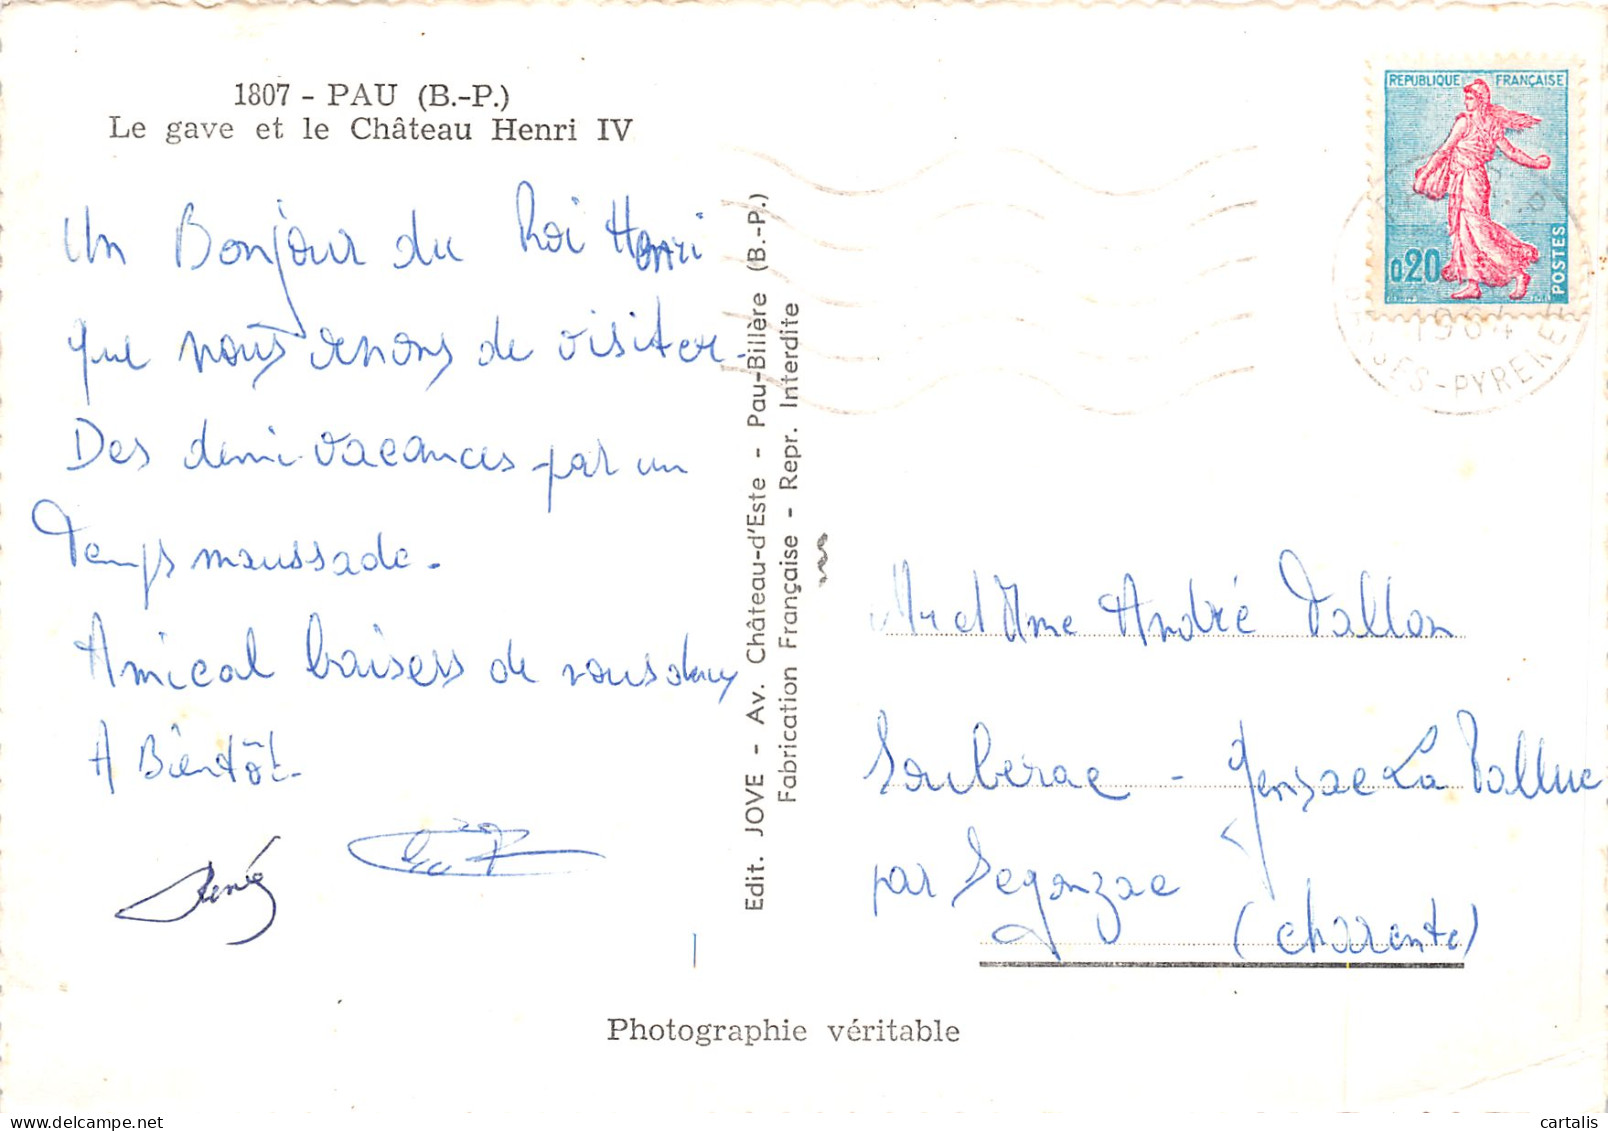 1807 - PAU (B.-P.)
Le gave et le Château Henri IV
Un Bonjour du Roi Henri
que nous venons de visiter.
Des demi-vacances par un
temps maussade.
Amical baisers de nous deux
A Bientôt.
René
Edit. JOVE - Av. Château-d'Este - Pau-Billère (B.-P.)
Fabrication Française - Repr. Interdite
REPUBLIQUE FRANÇAISE
0,20
POSTES
1964
BASSES-PYRENEES
Mr et Mme André Vallon
Souberac - Gensac La Pallue
par Segonzac
(Charente)
Photographie véritable
cartalis